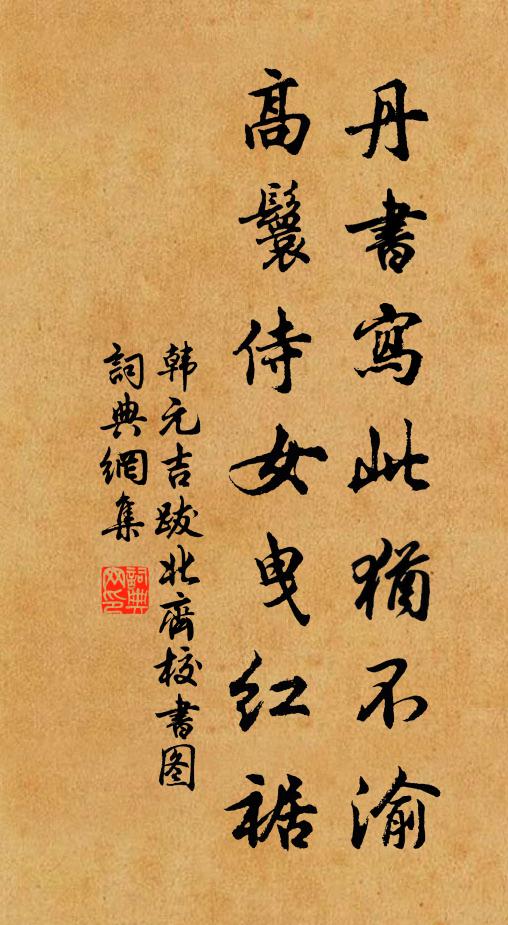 丹書寫此猶不渝
高鬟侍女曳红裾
韩元吉跋北齊校書图
詞典網集
詞典网印